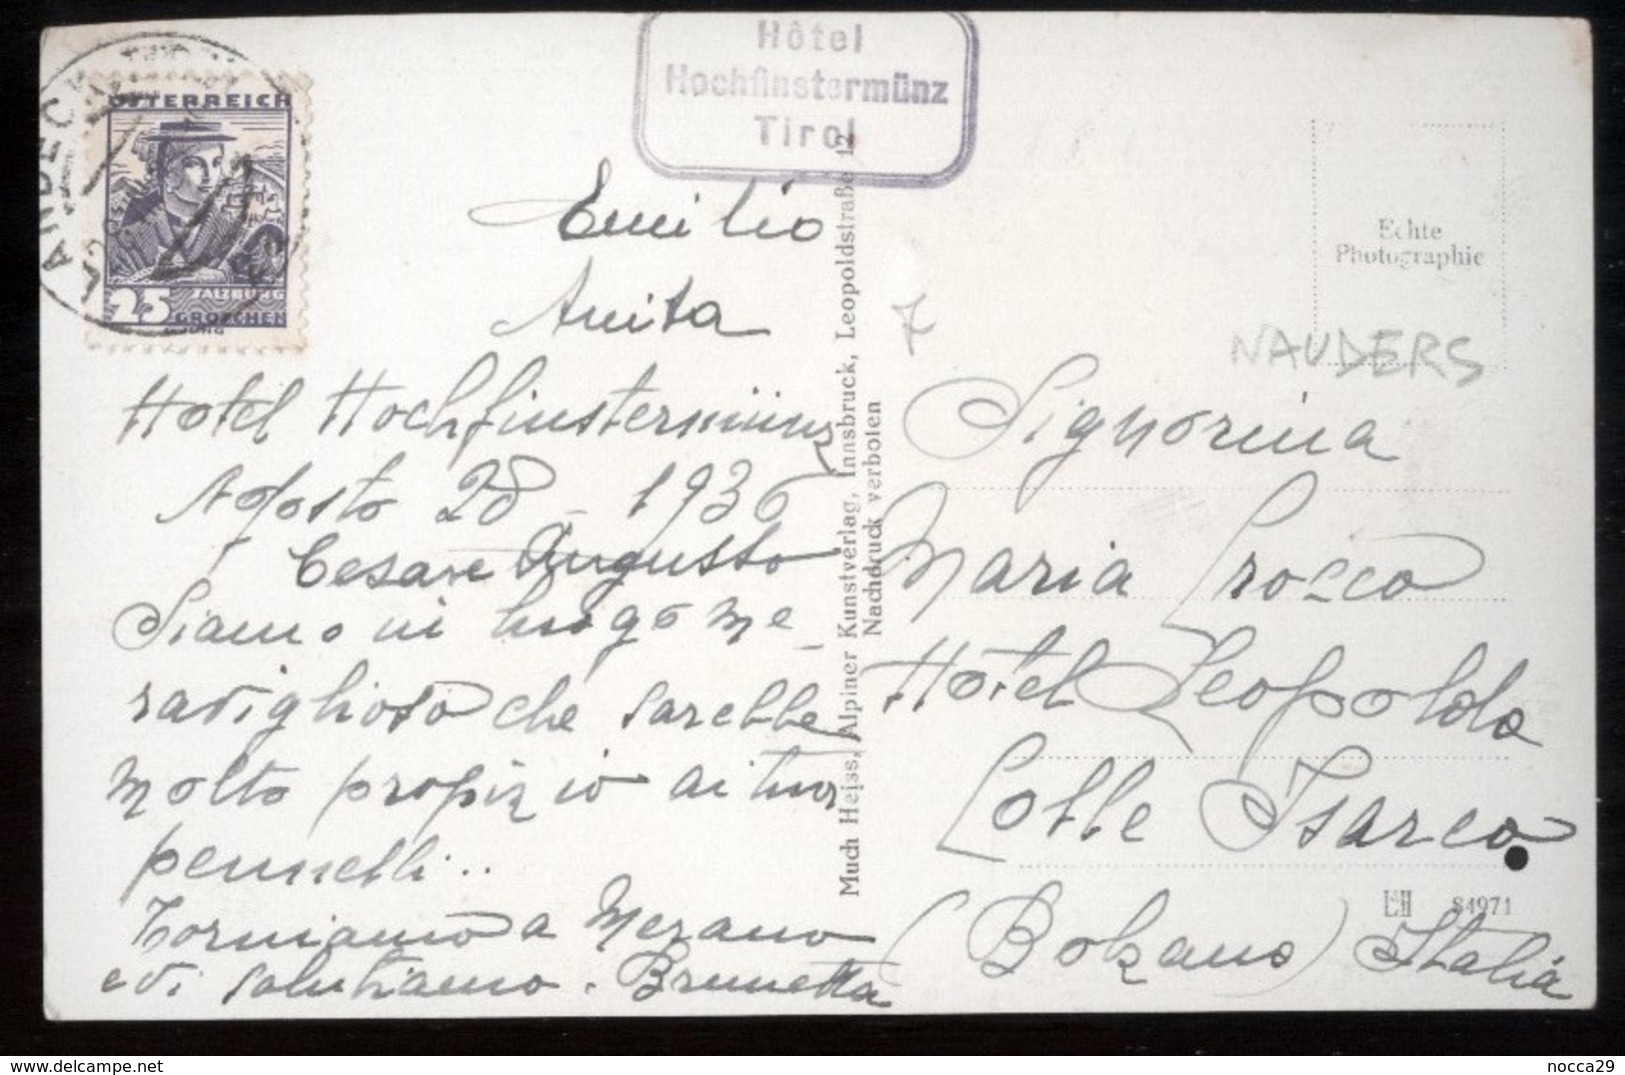 LANDECK
ÖSTERREICH
25
SALZBURG
GROSCHEN
Hôtel
Hochfinstermünz
Tirol
Emilio
Anita
Hotel Hochfinstermünz
Agosto 28 - 1936
Cesare Augusto
Siamo in luogo me_
raviglioso che sarebbe
molto propizio ai tuoi
pennelli..
Torniamo a Merano
e vi salutiamo. Brunetta
Much Heiss, Alpiner Kunstverlag, Innsbruck, Leopoldstraße 12
Nachdruck verboten
Echte
Photographie
7
NAUDERS
Signorina
Maria Crocco
Hotel Leopoldo
Colle Isarco
(Bolzano) Italia
84971
nocca29